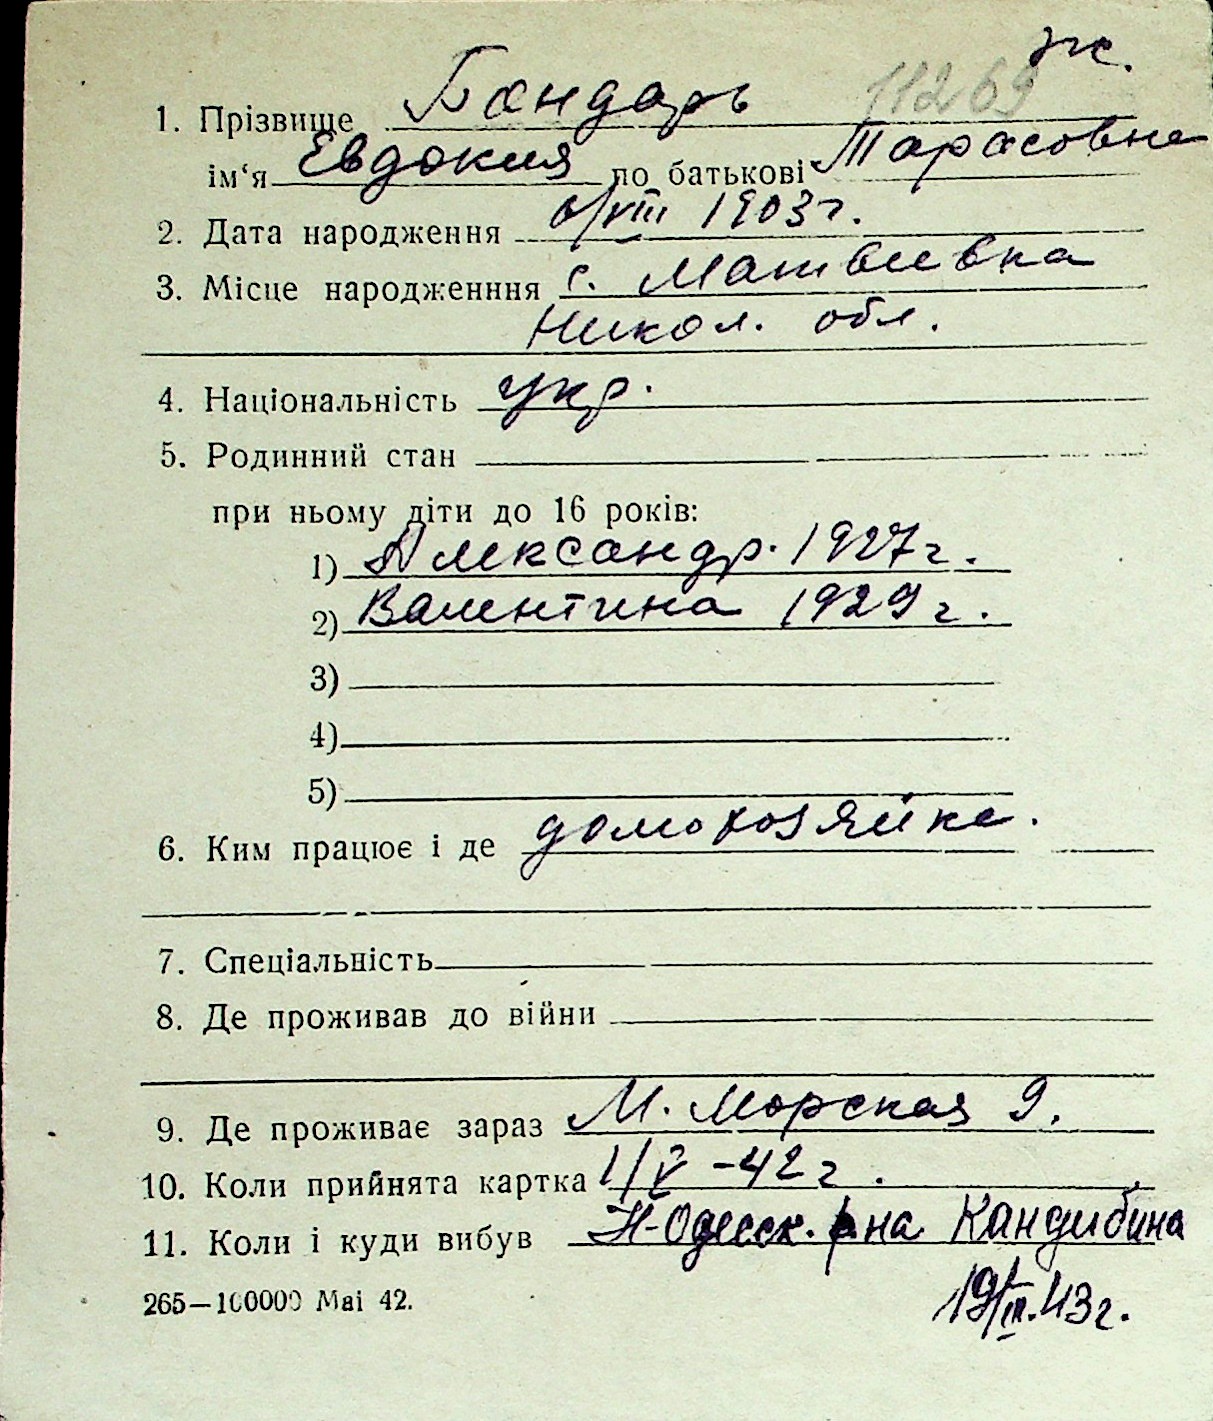 ж.
11269
1. Прізвище Бондарь
ім‘я Евдокия по батькові Тарасовна
2. Дата народження 6/VIII 1903 г.
3. Місце народженння с. Матвиевка
Никол. обл.
4. Національність укр.
5. Родинний стан
при ньому діти до 16 років:
1) Александр. 1927 г.
2) Валентина 1929 г.
3)
4)
5)
6. Ким працює і де домохозяйка.
7. Спеціальність
8. Де проживав до війни
9. Де проживає зараз М. Морская 9.
10. Коли прийнята картка 1/V -42 г.
11. Коли і куди вибув Н-Одесск. р-на Кандибина
265—100000 Mai 42. 19/III.43 г.